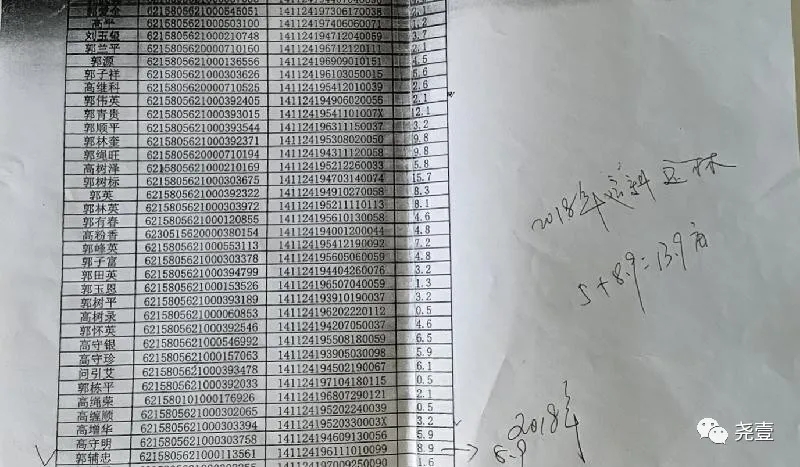 高平 6215805621000503100 141124197406060071 1.2
刘玉玺 6215805621000210748 141124194712040059 3.7
郭兰平 6215805620000710160 141124196712120111 2.1
郭源 6215805621000136556 141124196909010151 4.5
郭子祥 6215805621000303626 141124196103050015 5.6
高继科 6215805620000710525 141124195412010039 2.6
郭伟英 6215805621000392405 141124194906020056 2.1
郭青贵 6215805621000393015 14112419541101007X 12.1
郭顺平 6215805621000393544 141124196311150037 3.2
郭林奎 6215805621000392371 141124195308020050 9.8
郭绳旺 6215805620000710194 141124194311120058 9.8
高树泽 6215805621000210169 141124195212250033 5.8
郭树标 6215805621000303675 141124194703140074 15.7
郭英 6215805621000392322 141124194910270058 8.3
郭林英 6215805621000303972 141124195211110113 8.1
郭有春 6215805621000120855 141124195610130058 4.6
高粉香 6230515620000380154 141124194001200044 4.8
郭峰英 6215805621000553113 141124195412190092 7.2
郭子富 6215805621000303378 141124195605060059 4.8
郭田英 6215805621000394799 141124194404260076 3.2
郭玉恩 6215805621000153526 141124196507040059 1.3
郭树平 6215805621000393189 141124193910190037 3.2
高树录 6215805621000060853 141124196202220112 0.5
郭怀英 6215805621000392546 141124194207050037 4.6
高守银 6215805621000546992 141124195508180059 6.5
高守珍 6215805621000157063 141124193905030098 5.9
问引艾 6215805621000393478 141124194502190067 6.1
郭栋平 6215805621000392033 141124197104180115 0.5
高绳荣 621580101000176926 141124196807290121 2.1
高缠顺 6215805621000302065 141124195202240039 0.5
高增华 6215805621000303394 14112419520330003X 3.2
高守明 6215805621000303758 141124194609130056 5.9
郭辅忠 6215805621000113561 141124196111010099 8.9
2018年
5+8.9=13.9亩
2018年
8.9
尧壹